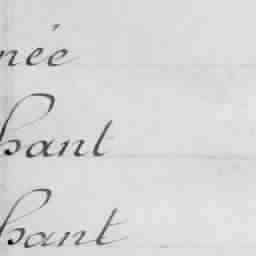 née
hant
hant